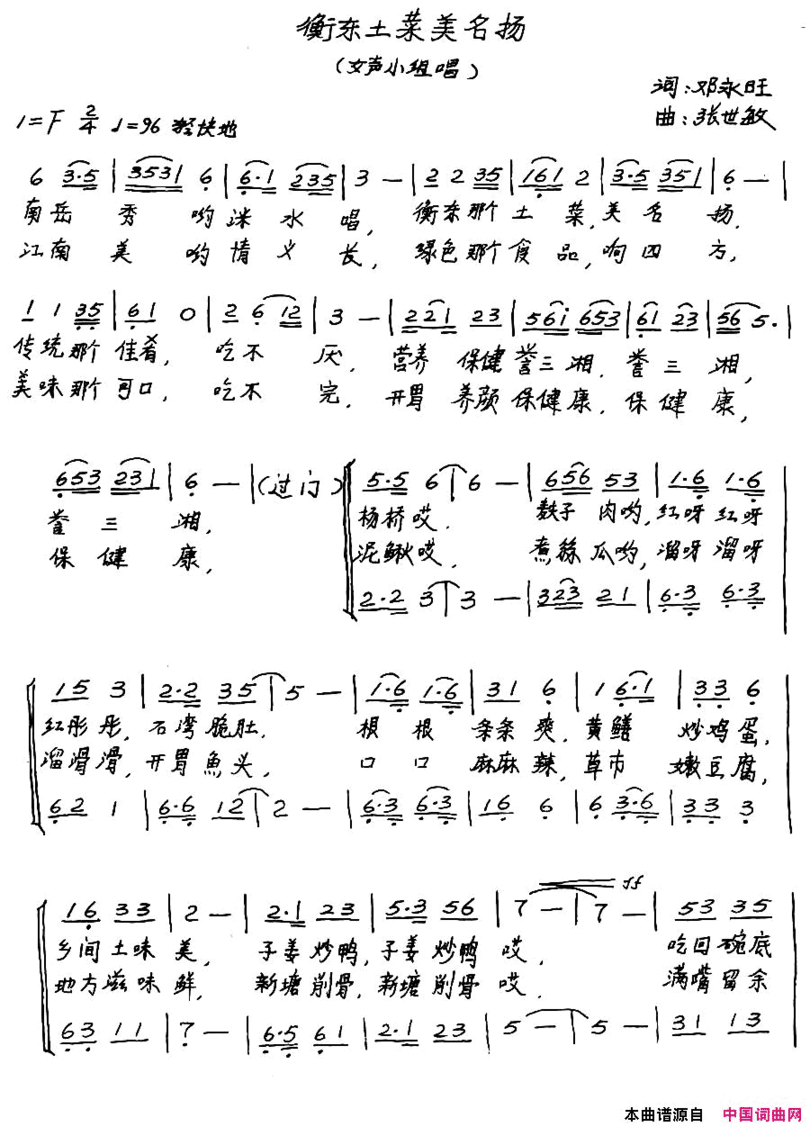 衡东土菜美名扬
（女声小组唱）
词：邓永旺
1=F 2/4 ♩=96 轻快地
曲：张世敏
6 3·5 | 3531 6 | 6·1 235 | 3 — | 2 2 35 | 161 2 | 3·5 351 | 6 — |
南岳 秀 哟 洣 水 唱， 衡东那个 土 菜，美 名 扬，
江南 美 哟 情 义 长， 绿色那个 食 品，响 四 方，
1 1 35 | 61 0 | 2 6 12 | 3 — | 221 23 | 561 653 | 61 23 | 56 5. |
传统那个 佳肴， 吃不 厌， 营养 保健 誉三湘，誉 三 湘，
美味那个 可口， 吃不 完， 开胃 养颜 保健康，保 健 康，
653 231 | 6 — | （过门） 5·5 6 | 6 — | 656 53 | 1·6 1·6 |
誉 三 湘， 杨桥哎， 麸子 肉哟，红呀 红呀
保 健 康， 泥鳅哎， 煮丝 瓜哟，溜呀 溜呀
2·2 3 | 3 — | 323 21 | 6·3 6·3 |
15 3 | 2·2 35 | 5 — | 1·6 1·6 | 31 6 | 1 6·1 | 33 6 |
红彤彤，石湾脆肚， 根 根 条条 爽，黄鳝 炒鸡蛋，
溜滑滑，开胃魚头， 口 口 麻麻 辣，草市 嫩豆腐，
62 1 | 6·6 12 | 2 — | 6·3 6·3 | 16 6 | 6 3·6 | 33 3 |
16 33 | 2 — | 2·1 23 | 5·3 56 | 7 — | 7 — | 53 35 | ff
乡间土味 美， 子姜炒鸭，子姜炒鸭 哎， 吃回碗底
地方滋味 鲜， 新塘削骨，新塘削骨 哎， 满嘴留余
63 11 | 7 — | 6·5 61 | 2·1 23 | 5 — | 5 — | 31 13
本曲谱源自 中国词曲网